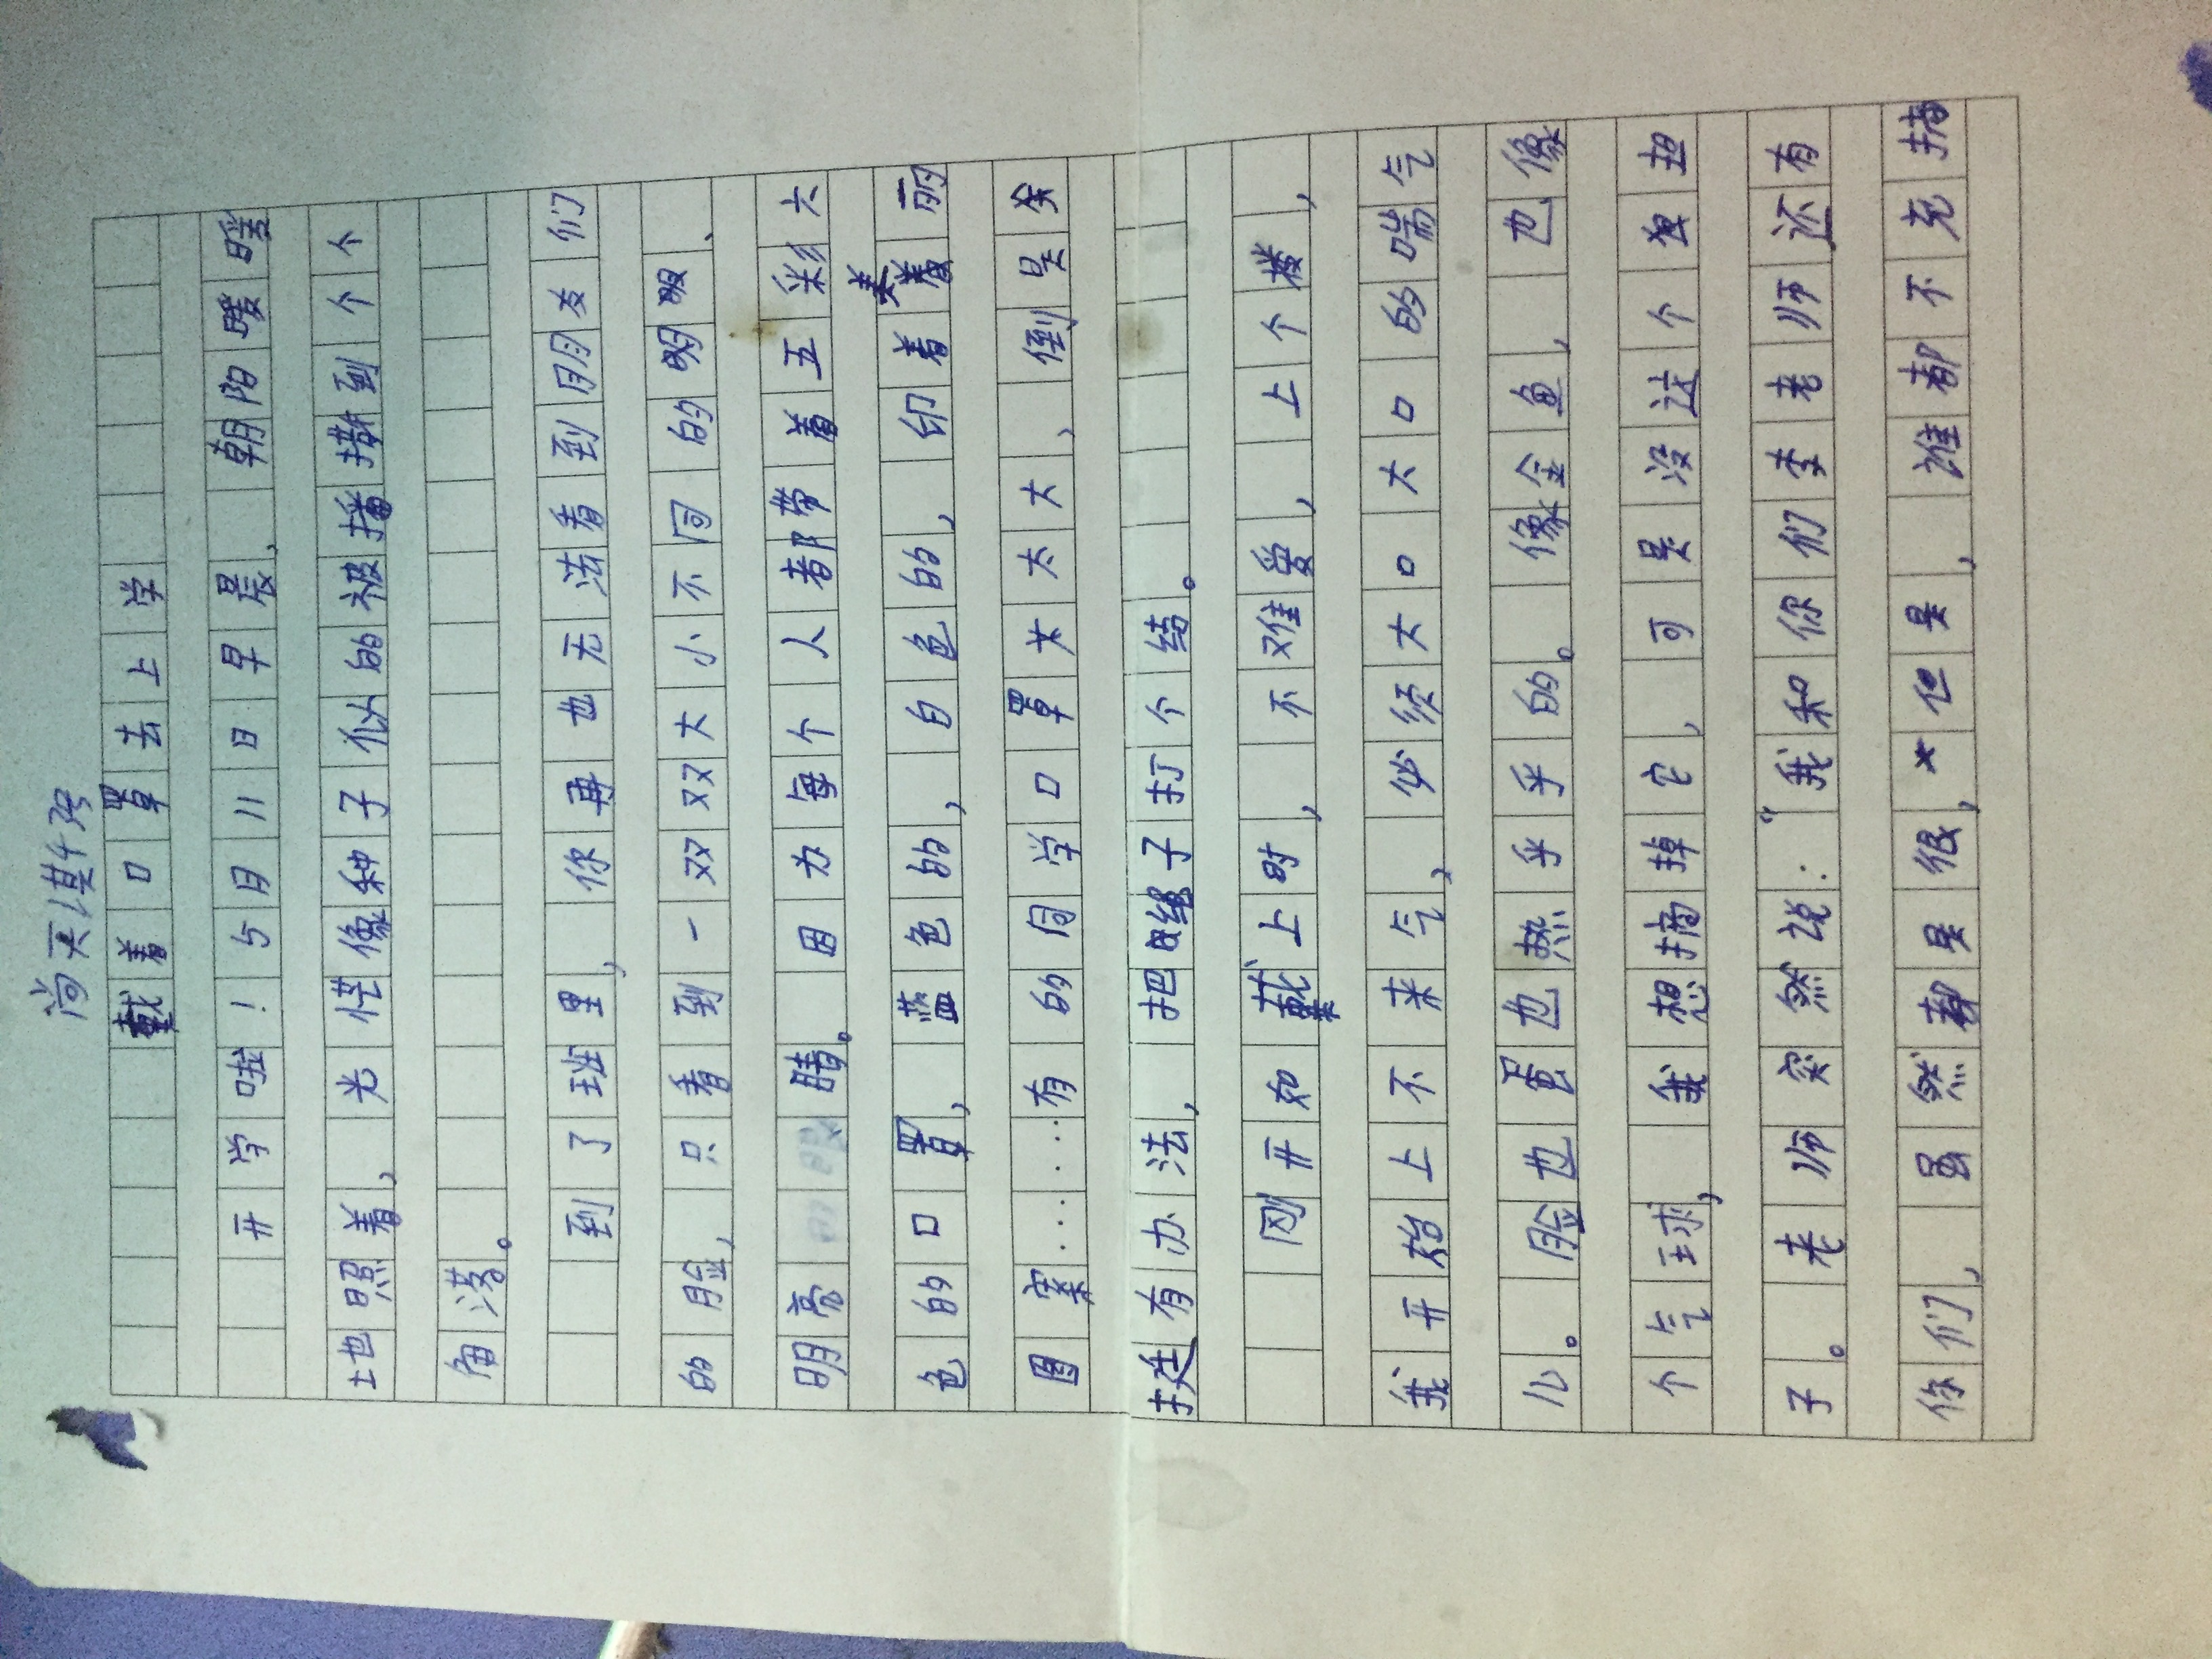 戴着口罩去上学
开学啦!5月11日早晨,朝阳暖暖
地照着,光芒像种子似的被播撒到个个
角落。
到了班里,你再也无法看到朋友们
的脸,只看到一双双大小不同的
明亮睛。因为每个人都带着五彩六
色的口罩,蓝色的,白色的,印着美丽
图案……有的同学口罩太太大,倒是
挺有办法,把绳子打个结。
刚开如戴上时,不难受,上个楼,
我开始上不来气,必须大口大口的喘气
儿。脸也蛋也热乎乎的。像金鱼,也像
个气球,我想摘掉它,可是没这个胆
子。老师突然说:“我和你们李老师还有
你们,虽然都是很,但是,谁都不充摘